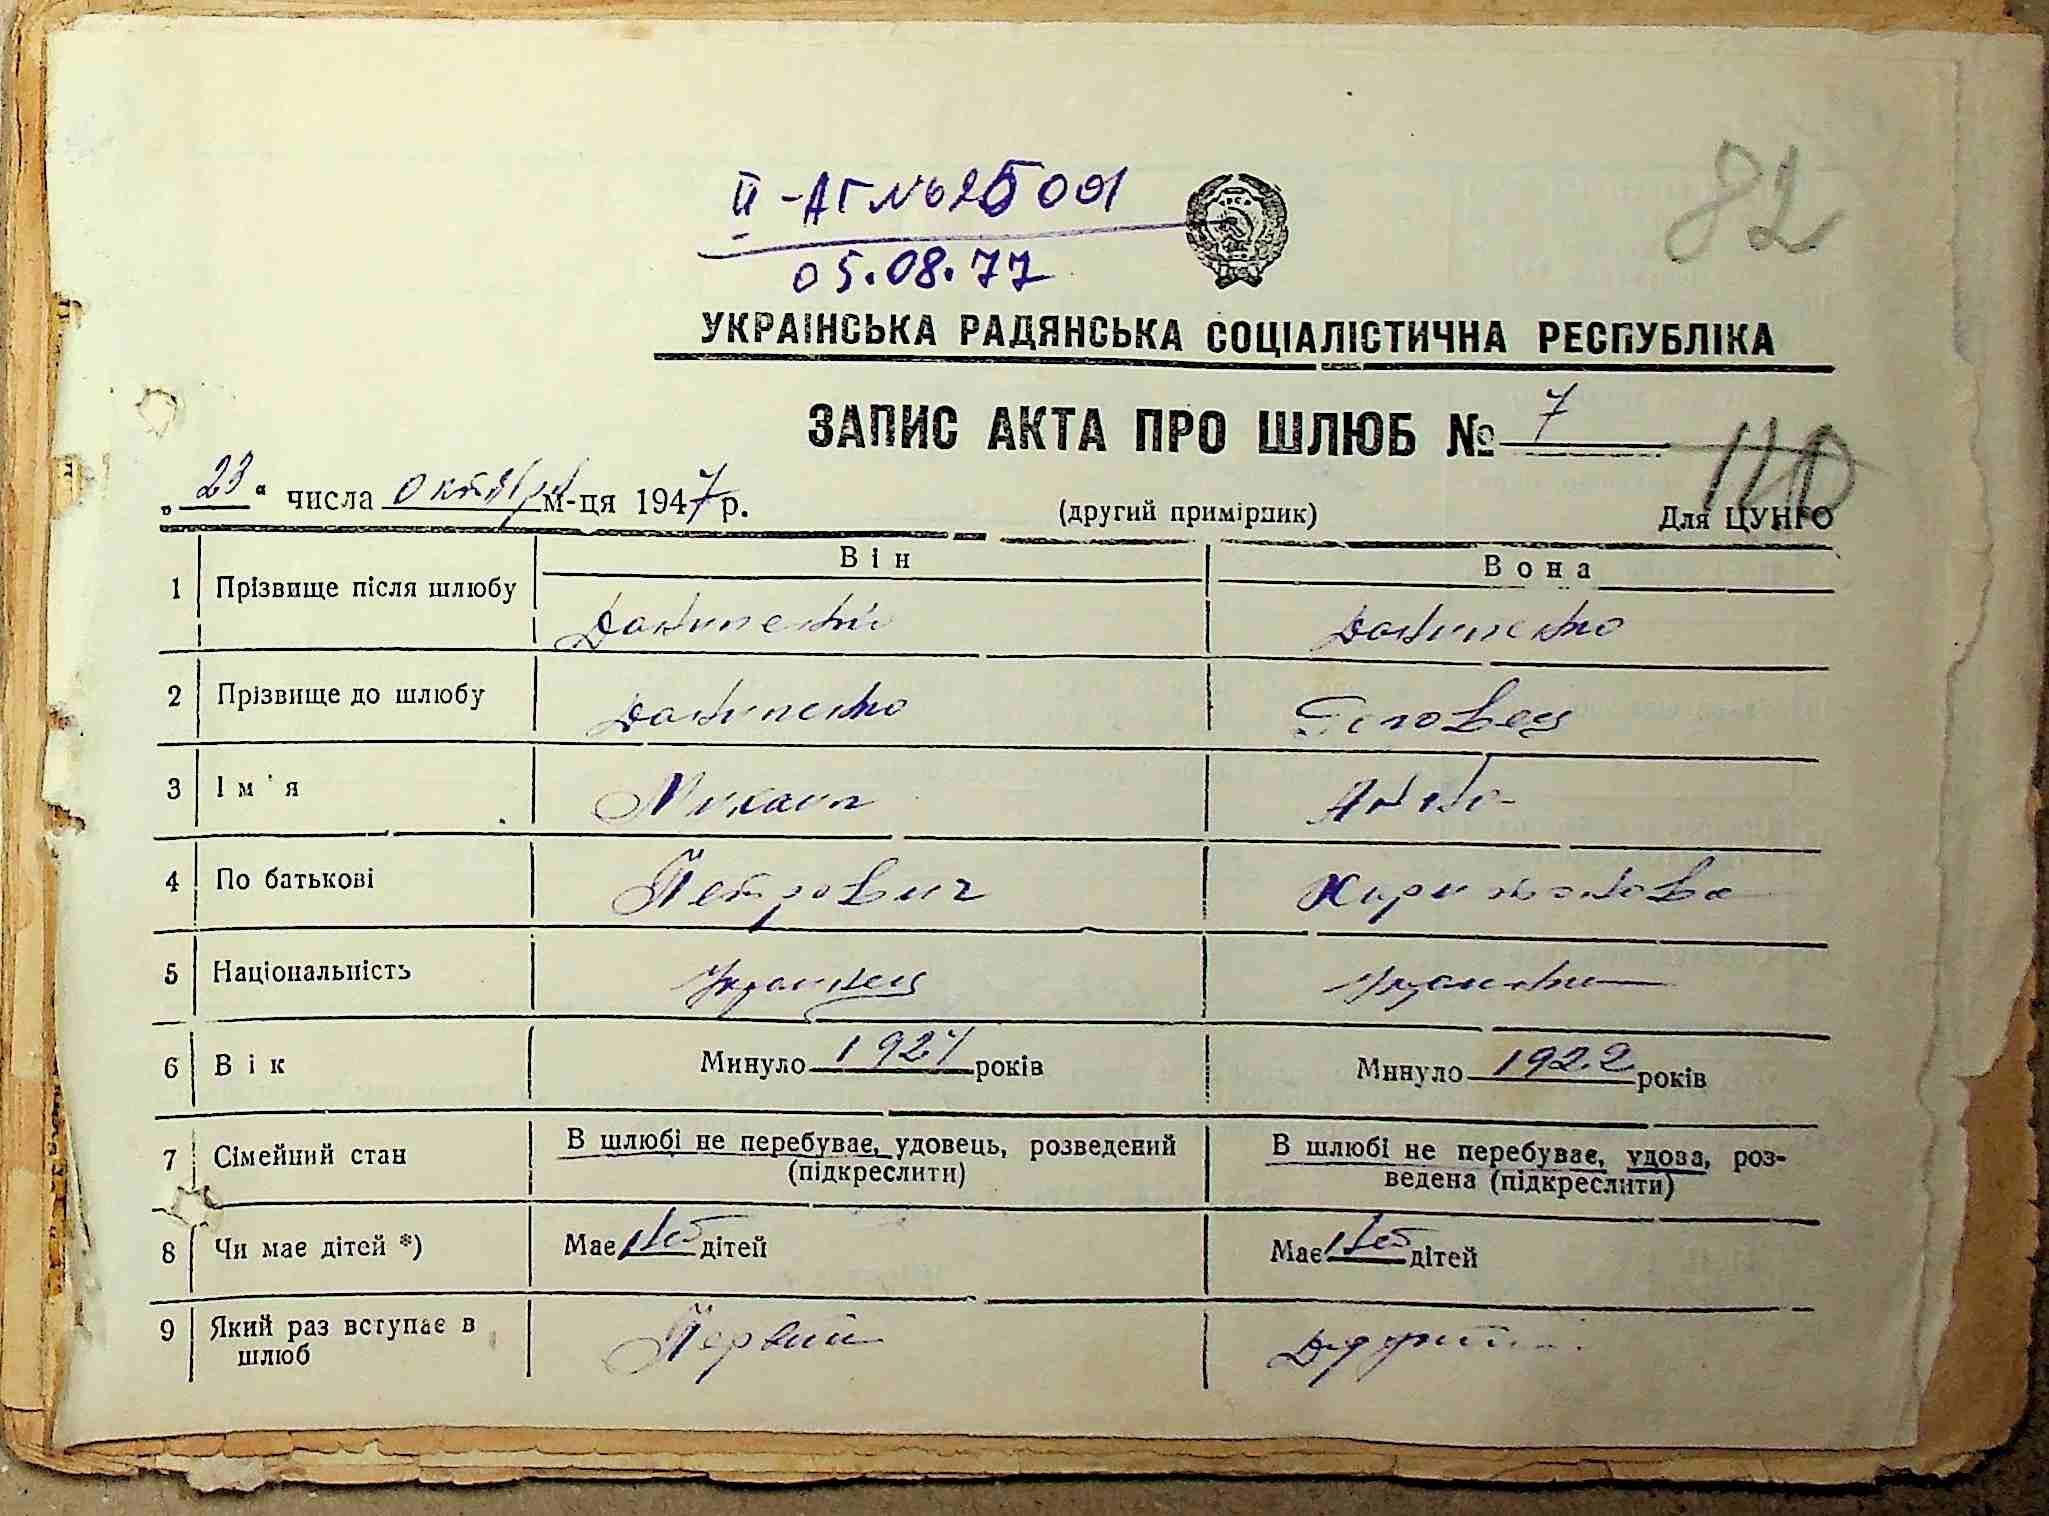 82
II-АГ №025001
05.08.77
УКРАЇНСЬКА РАДЯНСЬКА СОЦІАЛІСТИЧНА РЕСПУБЛІКА
ЗАПИС АКТА ПРО ШЛЮБ № 7
110
„23“ числа октября м-ця 1947 р. (другий примірник) Для ЦУНГО
Він Вона
1 Прізвище після шлюбу
2 Прізвище до шлюбу Головец
3 Ім'я Михаил Анна
4 По батькові Петрович Харитоновна
5 Національність Украинец Украинка
6 Вік Минуло 1927 років Минуло 1922 років
7 Сімейний стан В шлюбі не перебуває, удовець, розведений В шлюбі не перебуває, удова, роз-
(підкреслити) ведена (підкреслити)
8 Чи має дітей *) Має нет дітей Має нет дітей
9 Який раз вступає в Первий
шлюб